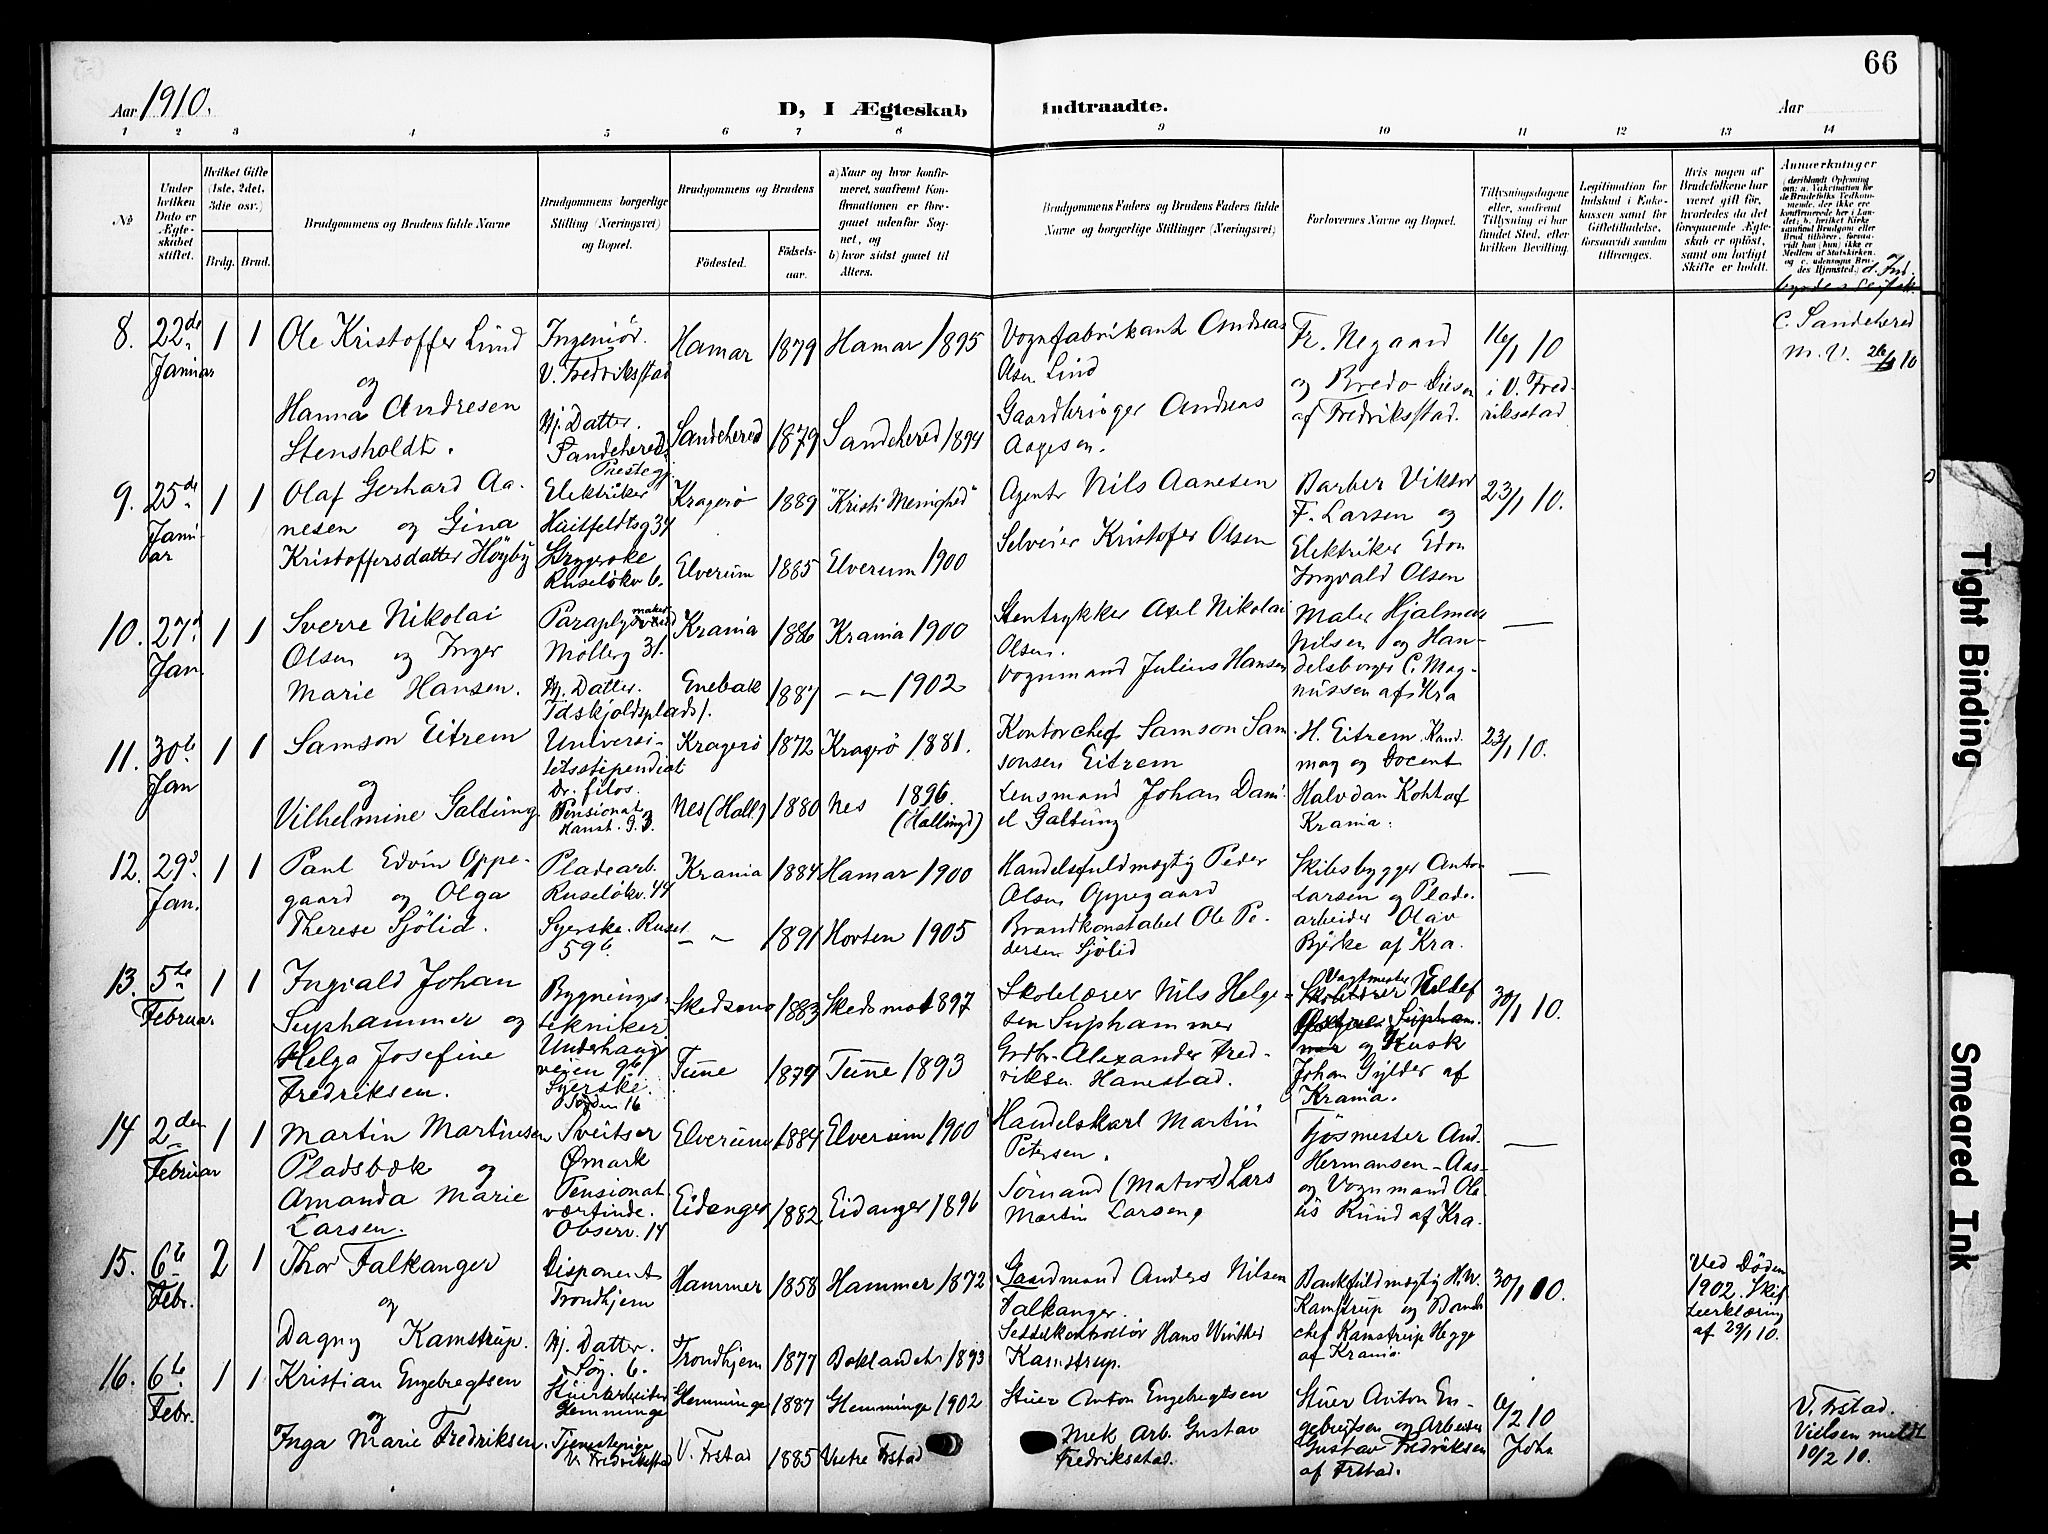 66
Aar 1910.
D, I Ægteskab Indtraadte.
Aar
1 2 3 4 5 6 7 8 9 10 11 12 13 14
No
Under hvilken Dato er Ægteskabet stiftet.
Hvilket Gifte (1ste, 2det, 3die osv.)
Brdg. Brud.
Brudgommens og Brudens fulde Navne
Brudgommens borgerlige Stilling (Næringsvei) og Bopæl.
Brudgommens og Brudens
Födested.
Födselsaar.
a) Naar og hvor konfirmeret, saafremt Konfirmationen er foregaaet udenfor Sognet, og
b) hvor sidst gaaet til Alters.
Brudgommens Faders og Brudens Faders fulde Navne og borgerlige Stillinger (Næringsvei)
Forlovernes Navne og Bopæl.
Tillysningsdagene eller, saafremt Tillysning ei har fundet Sted, efter hvilken Bevilling.
Legitimation for Indskud i Enkekassen samt for Giftetilladelse, forsaavidt saadan tiltrænges.
Hvis nogen af Brudefolkene har været gift før, hvorledes da det foregaaende Ægteskab er opløst, samt om lovligt Skifte er holdt.
Anmerkninger
8. 22de Januar 1 1
Ole Kristoffer Lund
og
Hanna Andresen
Stensholdt.
Ingeniør.
V. Fredriksstad
Hj. Datter.
Sandehered
Prestegj.
Hamar 1879 Hamar 1895
Sandehered 1879 Sandehered 1894
Vognfabrikant Andreas
Olsen Lind
Gaardbruger Andreas
Aagesen.
Fr. Negaard
og Bredo
af Fredriksstad.
16/1 10
i V. Fredriksstad
C. Sandehered
m. V. 26/1 10
9. 25de Januar 1 1
Olaf Gerhard Aanesen
og Gina
Kristoffersdatter Höyby
Elektriker
Huitfeldtsg 37
Strygerske
Ruselökv 6.
Kragerø 1889 "Kristi Menighed"
Elverum 1885 Elverum 1900
Agent Nils Aanesen
Selveier Kristofer Olsen
Barber Viktor
F. Larsen og
Elektriker Edon
Ingvald Olsen
23/1 10.
10. 27d Jan. 1 1
Sverre Nikolai
Olsen og Inger
Marie Hansen.
Paraplymaker
Mölleg 31.
Hj. Datter.
Tdskjoldsplads 1.
Krania 1886 Krania 1900
Enebak 1887 — " — 1902
Stentrykker Axel Nikolai
Olsen.
Vognmand Julius Hansen
Maler Hjalmar
Nilsen og Handelsborger C. Magnussen
af Kra
—
11. 30te Jan 1 1
Samson Eitrem
og
Vilhelmine Galtung.
Universitetsstipendiat
Dr. filos.
Pensionat
Hanst. g. 3.
Kragerö 1872 Kragrö 1881.
Nes (Hall.) 1880 Nes 1896.
(Hallingd)
Kontorchef Samson Samsonsen
Eitrem
Lensmand Johan Daniel
Galtung
H. Eitrem Kand.
mag og Docent
Halvdan Koht af
Krania.
23/1 10.
12. 29d Jan. 1 1
Paul Edvin Oppegaard
og Olga
Therese Sjölid.
Pladearb.
Ruselökv. 44
Syerske. Rusel
59b.
Krania 1884 Hamar 1900
— " — 1891 Horten 1905
Handelsfuldmægtig Peder
Olsen Oppegaard
Brandkonstabel Ole Pedersen
Sjölid
Skibsbygger Anton
Larsen og Pladearbeider
Olav
Bjerke af Kra.
—
13. 5te Februar 1 1
Ingvald Johan
Syphammer og
Helga Josefine
Fredriksen.
Bygningstekniker
Underhaugsveien
9b1
Syerske.
16
Skedsmo 1883 Skedsmo 1897
Tune 1879 Tune 1893
Skolelærer Nils Helgesen
Syphammer
Grdbr. Alexander Fredriksen
Hanestad.
Vagtmester
Skolelærer
og Kusk
Johan Gylder af
Krania.
30/1 10.
14 2den Februar 1 1
Martin Martinsen
Pladsbæk og
Amanda Marie
Larsen.
Sveitser
Ømark
Pensionatværtinde.
Observ. 14
Elverum 1884 Elverum 1900
Eidanger 1882 Eidanger 1896
Handelskarl Martin
Petersen.
Sömand (Matros) Lars
Martin Larsen,
Fjösmester And.
Hermansen – Aas–
og Vognmand Olaüs
Rund af Kra.
—
15. 6te Febr. 2 1
Thor Falkanger
og
Dagny Kamstrup.
Disponent
Trondhjem
Hj. Datter.
6.
Hammer 1858 Hammer 1872
Trondhjem 1877 Baklandet 1893
Gaardmand Anders Nilsen
Falkanger.
Seddelkontrollör Hans Winther
Kamstrup.
Bankfuldmægtig H. W.
Kamstrup og
Kamstrup Hegge
af Krania.
30/1 10.
Ved Døden
1902. Skifteerklæring
af 29/1 10.
16. 6te Febr. 1 1
Kristian Engebregtsen
og
Inga Marie Fredriksen.
Stuertarbeider
Glemminge
Tjenestepige
V. Fredrikstad
Glemminge 1887 Glemminge 1902
V. Frstad 1885 Vestre Frstad
Stuer Anton Engebregtsen
Mek Arb. Gustav
Fredriksstad.
Stuer Anton Engebregtsen
og Arbeider
Gustav Fredriksen
af Frstad.
6/2 10
V. Frstad.
Vielsen meldt
10/2 10.
Tight Binding
Smeared Ink